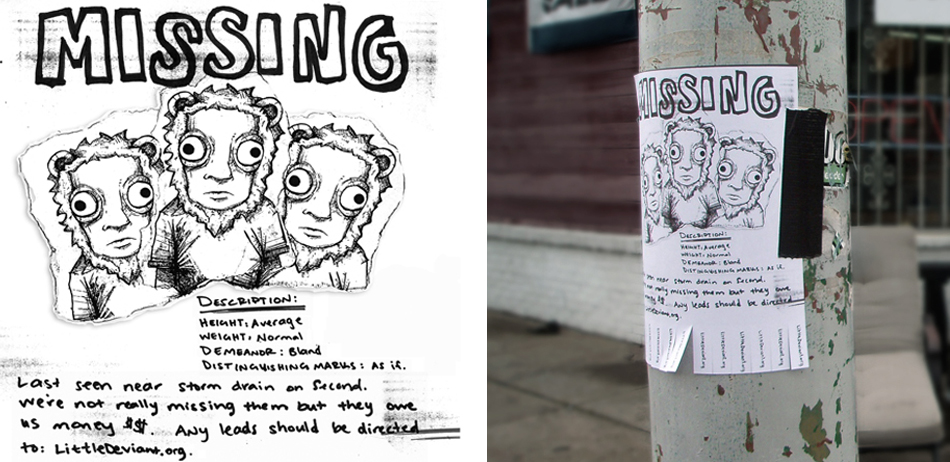 MISSING
DESCRIPTION:
HEIGHT: Average
WEIGHT: Normal
DEMEANOR: Bland
DISTINGUISHING MARKS: AS if.
Last seen near storm drain on Second.
we're not really missing them but they owe
us money $$. Any leads should be directed
to: LittleDeviant.org.
MISSING
DESCRIPTION:
HEIGHT: Average
WEIGHT: Normal
DEMEANOR: Bland
DISTINGUISHING MARKS: AS if.
seen near storm drain on Second.
not really missing them but they owe
$$. Any leads should be directed
LittleDeviant.org.